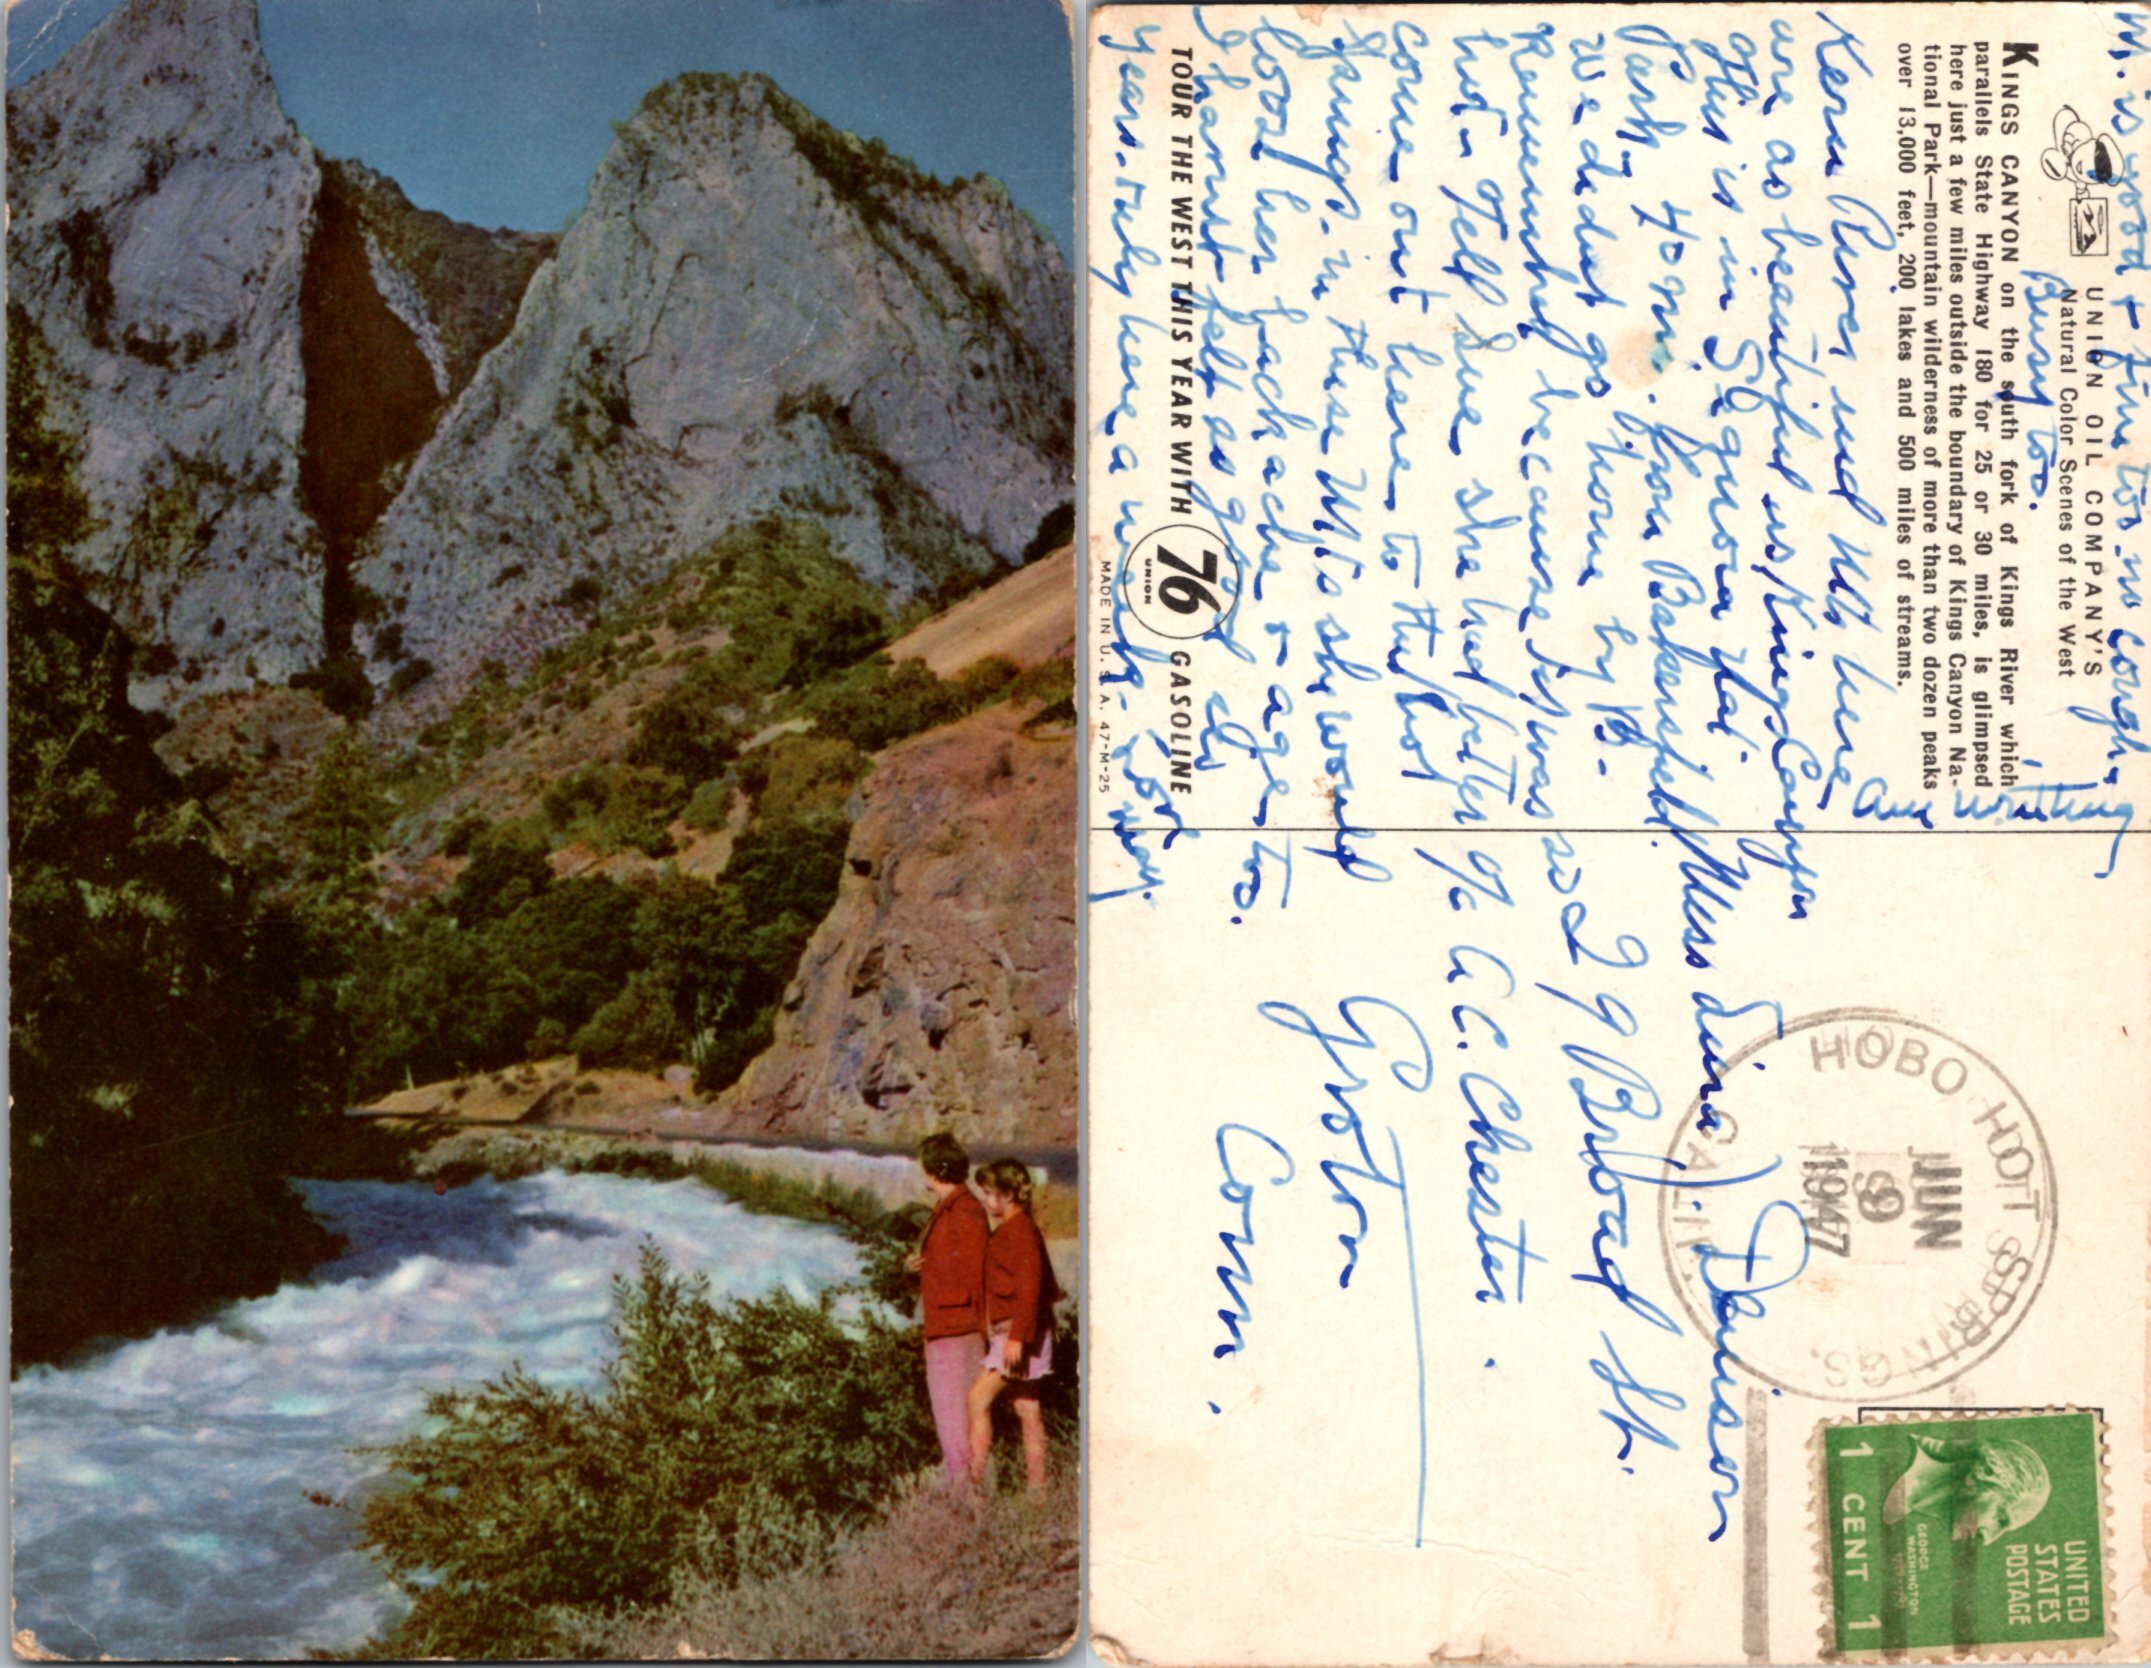 UNION OIL COMPANY'S
Natural Color Scenes of the West
KINGS CANYON on the south fork of Kings River which
parallels State Highway 180 for 25 or 30 miles, is glimpsed
here just a few miles outside the boundary of Kings Canyon Na-
tional Park—mountain wilderness of more than two dozen peaks
over 13,000 feet, 200 lakes and 500 miles of streams.
M. is good + fine too. no cough.
Busy too.
am writing
Kern River and Mts here
are as beautiful as Kings Canyon
This is in Sequoia Nat
Park - 40 mi. from Bakersfield.
We didn't go home by B-
Remember because it was so
hot - Tell Sue she had better
come out here to the hot
Springs - in these Mts she would
loose her backache & age too.
I haven't felt as good in
years - only here a week - now.
TOUR THE WEST THIS YEAR WITH 76 UNION GASOLINE
MADE IN U. S. A. 47-M-25
HOBO HOT SPRINGS.
CALIF.
JUN
9
1947
UNITED
STATES
POSTAGE
GEORGE
WASHINGTON
1 CENT 1
Miss Denison
29 Broad St.
% A. C. Chester.
Groton
Conn.